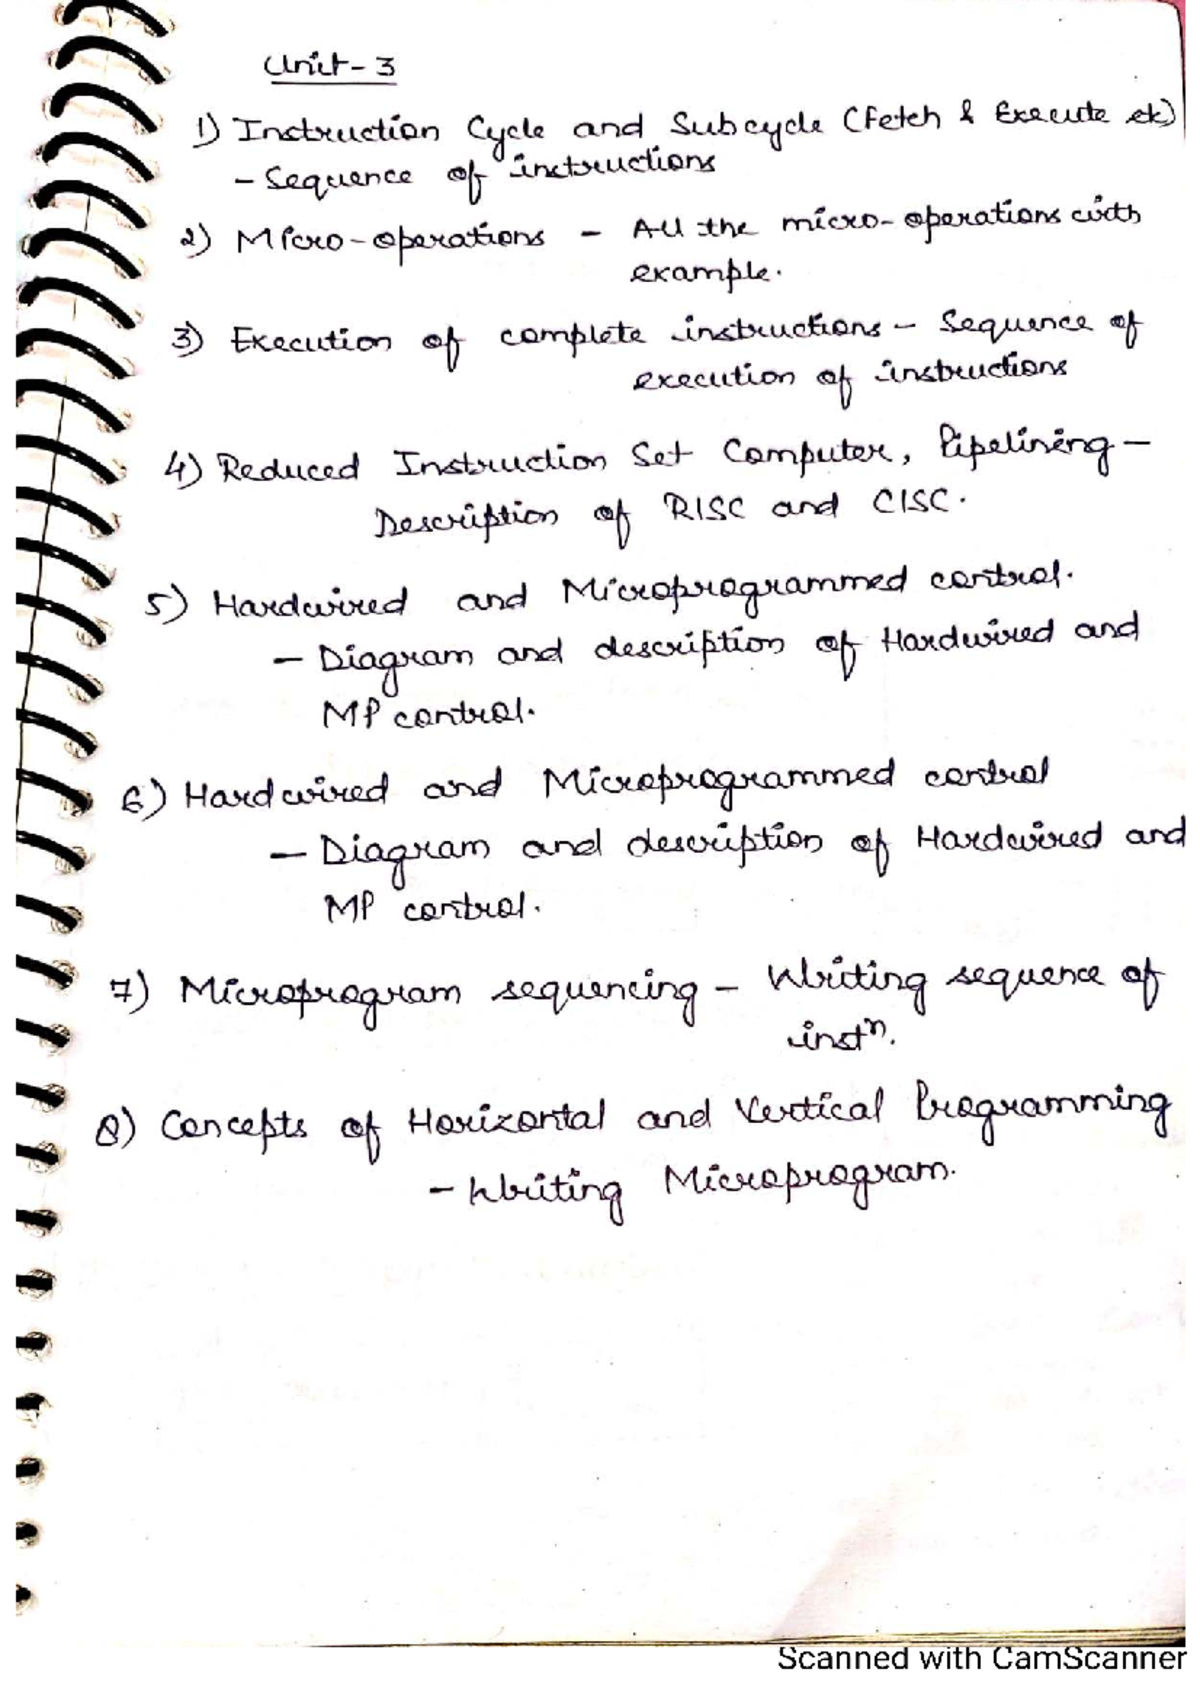 Unit - 3
1) Instruction Cycle and Subcycle (Fetch & Execute etc)
- Sequence of instructions
2) Micro-operations - All the micro-operations with
example.
3) Execution of complete instructions - Sequence of
execution of instructions
4) Reduced Instruction Set Computer, Pipelining -
Description of RISC and CISC.
5) Hardwired and Microprogrammed control.
- Diagram and description of Hardwired and
MP control.
6) Hardwired and Microprogrammed control
- Diagram and description of Hardwired and
MP control.
7) Microprogram sequencing - Writing sequence of
instⁿ.
8) Concepts of Horizontal and Vertical Programming
- Writing Microprogram.
Scanned with CamScanner